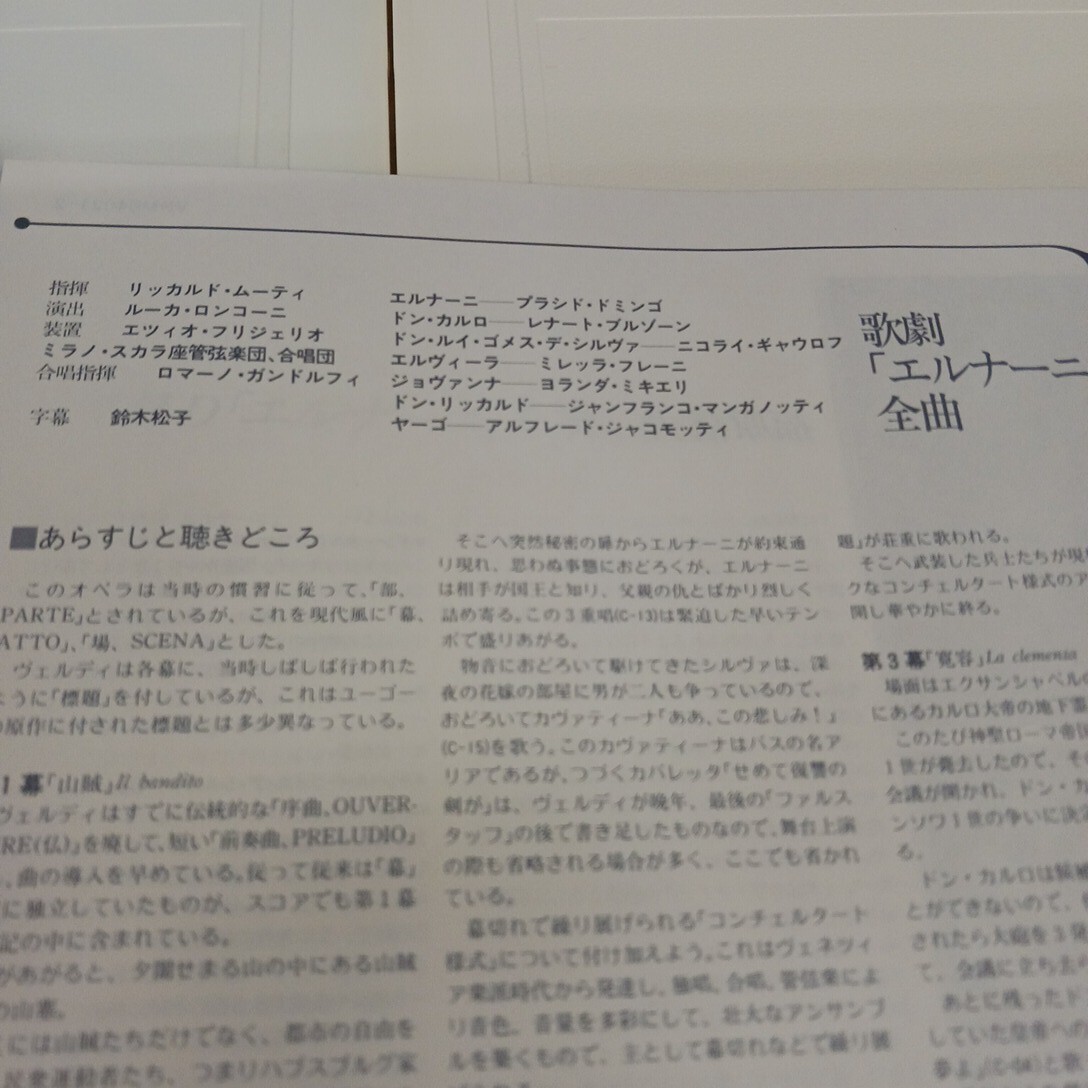 指揮 リッカルド・ムーティ
演出 ルーカ・ロンコーニ
装置 エツィオ・フリジェリオ
ミラノ・スカラ座管弦楽団、合唱団
合唱指揮 ロマーノ・ガンドルフィ
字幕 鈴木松子
エルナーニ──プラシド・ドミンゴ
ドン・カルロ──レナート・ブルゾーン
ドン・ルイ・ゴメス・デ・シルヴァ──ニコライ・ギャウロフ
エルヴィーラ──ミレッラ・フレーニ
ジョヴァンナ──ヨランダ・ミキエリ
ドン・リッカルド──ジャンフランコ・マンガノッティ
ヤーゴ──アルフレード・ジャコモッティ
歌劇
「エルナーニ
全曲
■あらすじと聴きどころ
このオペラは当時の慣習に従って、「部、
PARTE」とされているが、これを現代風に「幕、
ATTO」、「場、SCENA」とした。
ヴェルディは各幕に、当時しばしば行われた
ように「標題」を付しているが、これはユーゴー
原作に付された標題とは多少異なっている。
1幕「山賊」Il bandito
ヴェルディはすでに伝統的な「序曲、OUVER-
RE(仏)」を廃して、短い「前奏曲、PRELUDIO」
、曲の導入を早めている。従って従来は「幕」
に独立していたものが、スコアでも第1幕
記の中に含まれている。
があがると、夕闇せまる山の中にある山賊
の山塞。
には山賊たちだけでなく、都市の自由を
民衆運動者たち、つまりハプスブルグ家
そこへ突然秘密の扉からエルナーニが約束通
り現れ、思わぬ事態におどろくが、エルナーニ
は相手が国王と知り、父親の仇とばかり烈しく
詰め寄る。この3重唱(C-13)は緊迫した早いテン
ポで盛りあがる。
物音におどろいて駆けてきたシルヴァは、深
夜の花嫁の部屋に男が二人も争っているので、
おどろいてカヴァティーナ「ああ、この悲しみ!」
(C-15)を歌う。このカヴァティーナはバスの名ア
リアであるが、つづくカバレッタ「せめて復讐の
剣が」は、ヴェルディが晩年、最後の「ファルス
タッフ」の後で書き足したものなので、舞台上演
の際も省略される場合が多く、ここでも省かれ
ている。
幕切れで繰り展げられる「コンチェルタート
様式」について付け加えよう。これはヴェネツィ
ア楽派時代から発達し、独唱、合唱、管弦楽によ
り音色、音量を多彩にして、壮大なアンサンブ
ルを築くもので、主として幕切れなどで繰り展
題」が荘重に歌われる。
そこへ武装した兵士たちが現
クなコンチェルタート様式のア
開し華やかに終る。
第3幕「寛容」La clemenza
場面はエクサンシャペルの
にあるカルロ大帝の地下墓
このたび神聖ローマ帝国
1世が薨去したので、その
会議が開かれ、ドン・カ
ンソワ1世の争いに決
る。
ドン・カルロは候補
とができないので、
されたら大砲を3発
て、会議に立ち去
あとに残ったド
していた皇帝への